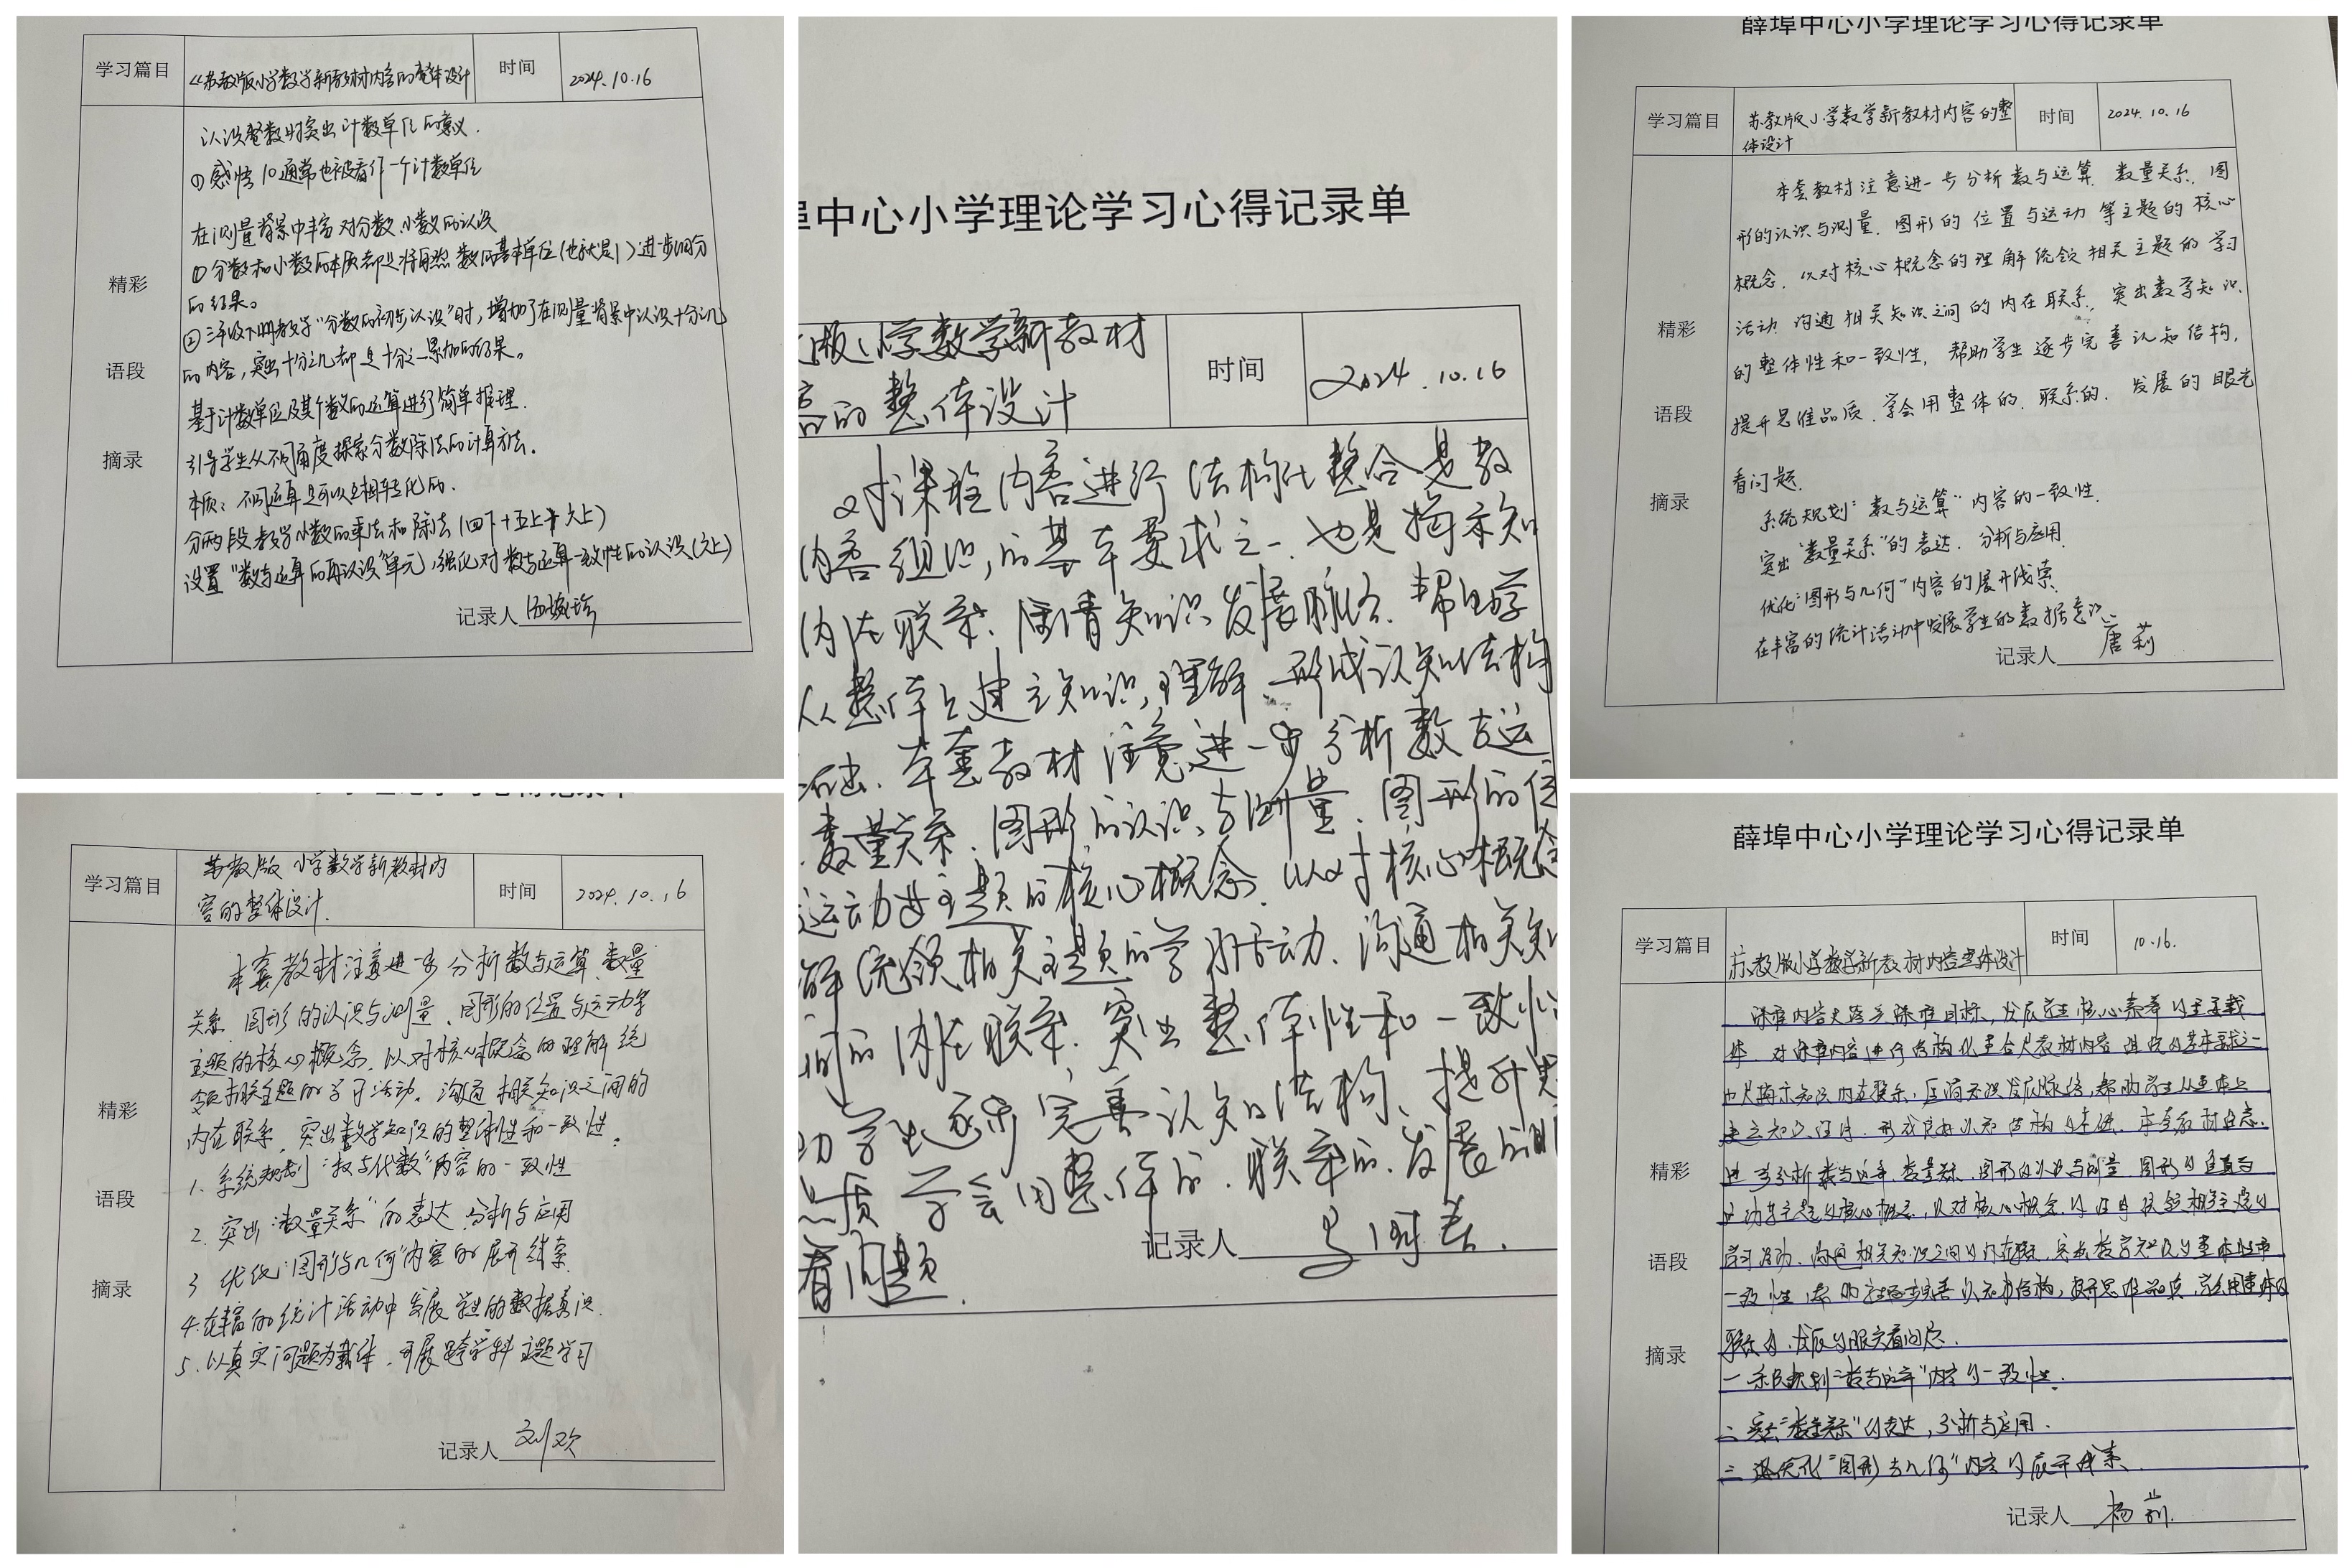 学习篇目
《苏教版小学数学新教材内容的整体设计
时间
2024.10.16
认识整数时突出计数单位的意义.
①感悟10通常也被看作一个计数单位
在测量背景中丰富对分数、小数的认识
①分数和小数的本质都是将自然数的基本单位(也就是1)进一步细分
的结果。
②三年级下册教学“分数的初步认识”时,增加了在测量背景中认识十分之几
的内容,突出十分之几都是十分之一累加的结果。
基于计数单位及其个数的运算进行简单推理.
引导学生从不同角度探索分数除法的计算方法.
本质:不同运算是可以互相转化的.
分两段教学小数的乘法和除法(四下+五上+六上)
设置“数与运算的再认识”单元,强化对数与运算一致性的认识(六上)
精彩
语段
摘录
记录人
学习篇目
苏教版小学数学新教材内
容的整体设计.
时间
2024.10.16
本套教材注意进一步分析数与运算、数量
关系、图形的认识与测量、图形的位置与运动等
主题的核心概念,以对核心概念的理解统
领相关主题的学习活动,沟通相关知识之间的
内在联系,突出数学知识的整体性和一致性。
1.系统规划“数与代数”内容的一致性
2.突出“数量关系”的表达、分析与应用
3.优化“图形与几何”内容的展开线索
4.在丰富的统计活动中发展学生的数据意识.
5.以真实问题为载体,开展跨学科主题学习
精彩
语段
摘录
记录人 刘欢
埠中心小学理论学习心得记录单
版小学数学新教材
容的整体设计
时间
2024.10.16
对课程内容进行结构化整合是教
内容组织的基本要求之一,也是揭示知
内在联系、厘清知识发展脉络,帮助学
从整体上建立知识理解,形成认知结构
基础.本套教材注意进一步分析数与运
数量关系、图形的认识与测量、图形的位
运动等主题的核心概念,以对核心概念
解统领相关主题的学习活动,沟通相关知
间的内在联系,突出整体性和一致性
助学生逐步完善认知结构、提升思
品质,学会用整体的、联系的、发展的眼
看问题.
记录人
薛埠中心小学理论学习心得记录单
学习篇目
苏教版小学数学新教材内容的整
体设计
时间
2024.10.16
本套教材注意进一步分析数与运算、数量关系、图
形的认识与测量、图形的位置与运动等主题的核心
概念,以对核心概念的理解统领相关主题的学习
活动,沟通相关知识之间的内在联系,突出数学知识
的整体性和一致性,帮助学生逐步完善认知结构,
提升思维品质,学会用整体的、联系的、发展的眼光
看问题.
系统规划“数与运算”内容的一致性.
突出“数量关系”的表达、分析与应用.
优化“图形与几何”内容的展开线索.
在丰富的统计活动中发展学生的数据意识.
精彩
语段
摘录
记录人 唐莉
薛埠中心小学理论学习心得记录单
学习篇目
苏教版小学数学新教材内容整体设计
时间
10.16.
课程内容是落实课程目标,发展学生核心素养的重要载
体.对课程内容进行结构化整合是教材内容组织的基本要求之一
也是揭示知识内在联系,厘清知识发展脉络,帮助学生从整体上
建立知识理解,形成良好认知结构的基础.本套教材注意
进一步分析数与运算、数量关系、图形的认识与测量、图形的位置与
运动等主题的核心概念,以对核心概念的理解统领相关主题的
学习活动,沟通相关知识之间的内在联系,突出数学知识的整体性和
一致性,帮助学生逐步完善认知结构,提升思维品质,学会用整体的
联系的、发展的眼光看问题.
一 系统规划“数与运算”内容的一致性.
二 突出“数量关系”的表达,分析与应用.
三 优化“图形与几何”内容的展开线索.
精彩
语段
摘录
记录人 杨莉